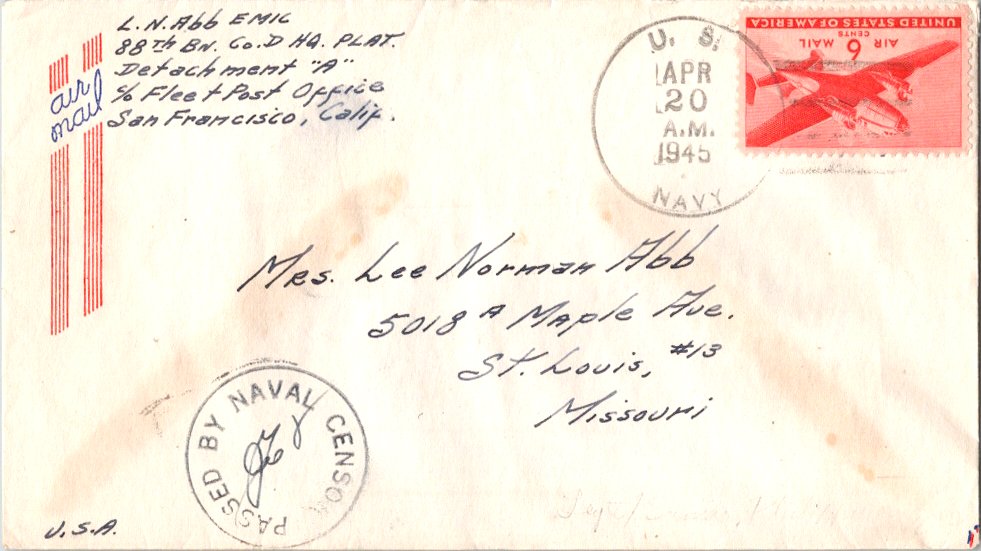 L.N. Abb EM1C
88TH Bn. Co. D HQ. PLAT.
Detachment "A"
c/o Fleet Post Office
San Francisco, Calif.
air
mail
U. S.
APR
20
A.M.
1945
NAVY
UNITED STATES OF AMERICA
CENTS
AIR 6 MAIL
Mrs. Lee Norman Abb
5018 A Maple Ave.
St. Louis, #13
Missouri
PASSED BY NAVAL CENSOR
U.S.A.